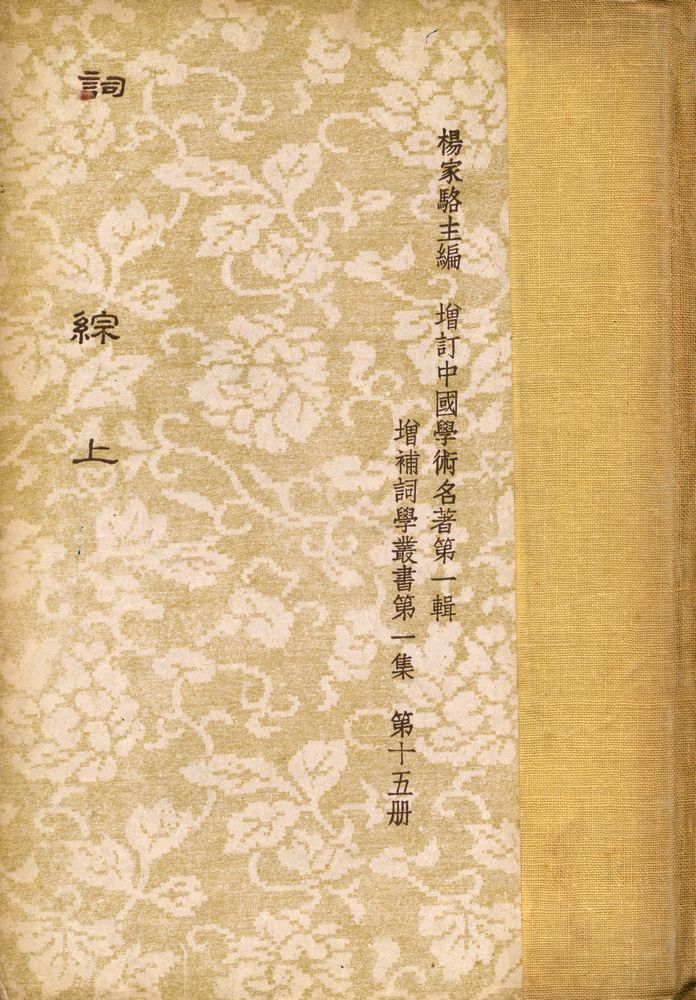 楊家駱主編　增訂中國學術名著第一輯
增補詞學叢書第一集　第十五册
詞綜上